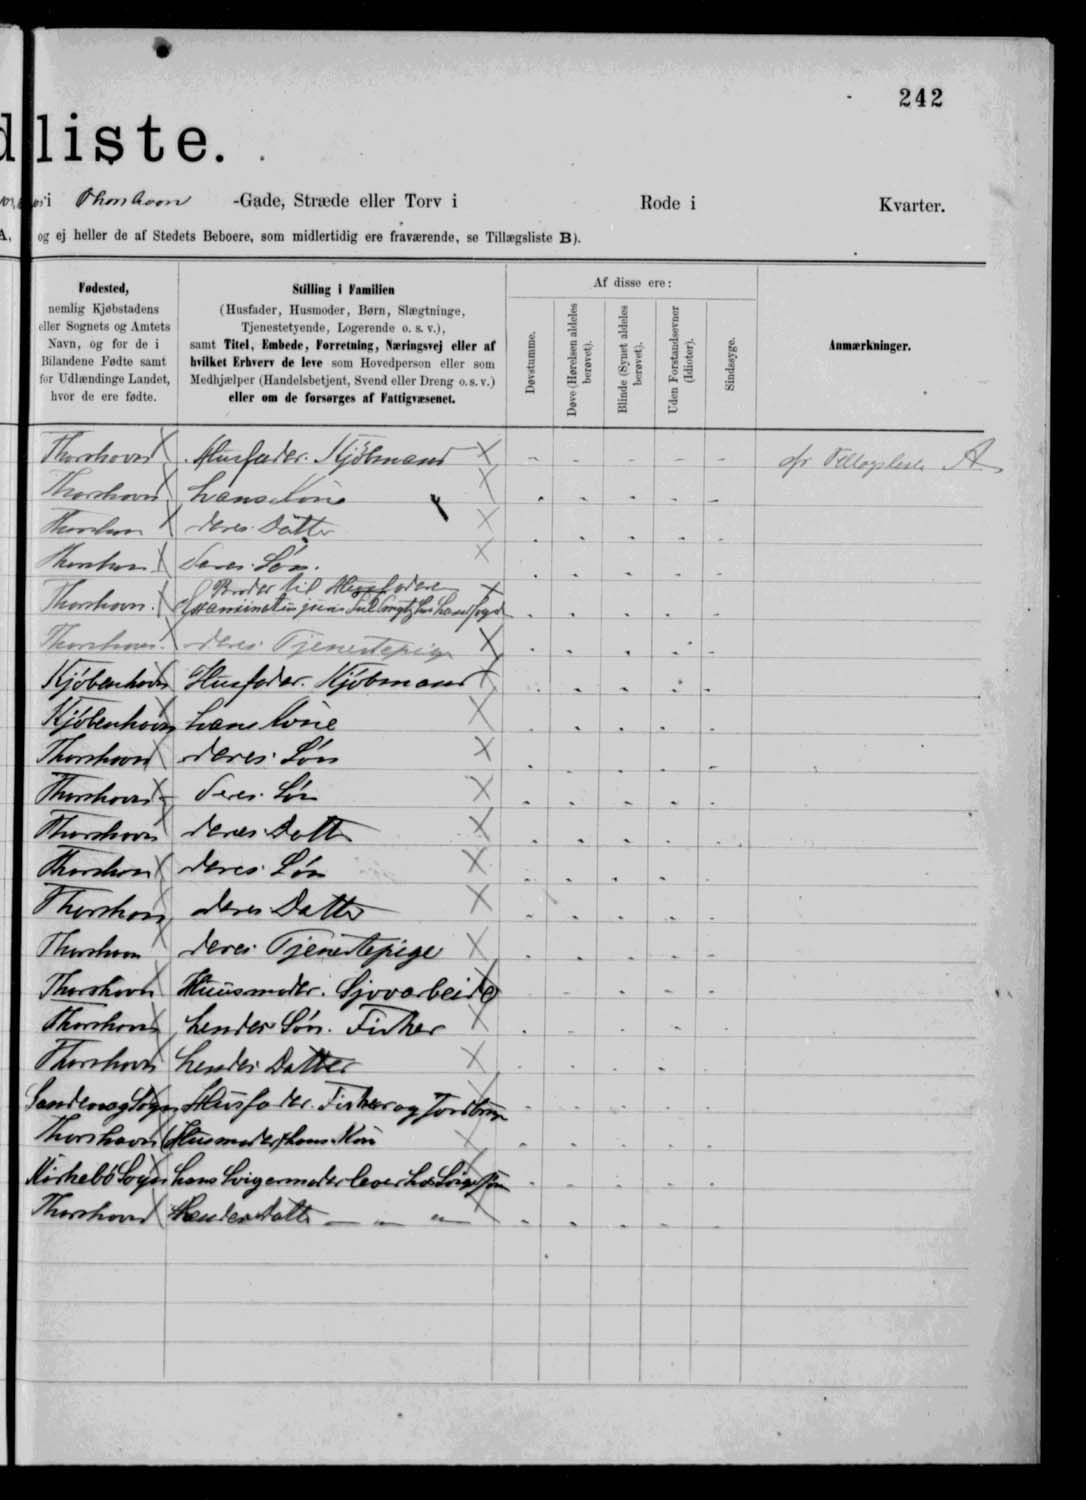 242
liste.
i Thorshavn -Gade, Stræde eller Torv i Rode i Kvarter.
A, og ej heller de af Stedets Beboere, som midlertidig ere fraværende, se Tillægsliste B).
Fødested,
nemlig Kjøbstadens
eller Sognets og Amtets
Navn, og for de i
Bilandene Fødte samt
for Udlændinge Landet,
hvor de ere fødte.
Stilling i Familien
(Husfader, Husmoder, Børn, Slægtninge,
Tjenestetyende, Logerende o. s. v.),
samt Titel, Embede, Forretning, Næringsvej eller af
hvilket Erhverv de leve som Hovedperson eller som
Medhjælper (Handelsbetjent, Svend eller Dreng o. s. v.)
eller om de forsørges af Fattigvæsenet.
Af disse ere:
Døvstumme.
Døve (Hørelsen aldeles
berøvet).
Blinde (Synet aldeles
berøvet).
Uden Forstandsevner
(Idioter).
Sindssyge.
Anmærkninger.
Thorshavn Husfader. Kjöbmand - - - - - A
Thorshavn hans Kone
Thorshavn deres Datter
Thorshavn deres Søn.
Broder til Husfaderen
Thorshavn.
Thorshavn. deres Tjenestepige
Kjöbenhavn Husfader. Kjöbmand
Kjöbenhavn hans Kone
Thorshavn deres Søn
Thorshavn deres Søn
Thorshavn deres Datter
Thorshavn deres Søn
Thorshavn deres Datter
Thorshavn deres Tjenestepige
Thorshavn Huusmoder.
Thorshavn hendes Søn. Fisker
Thorshavn hendes Datter
Husfader. Fisker og
Thorshavn Husmoder hans Kone
Kirkebø Sogn hans Svigermoder lever hos
Thorshavn Hendes Datter — " — " —